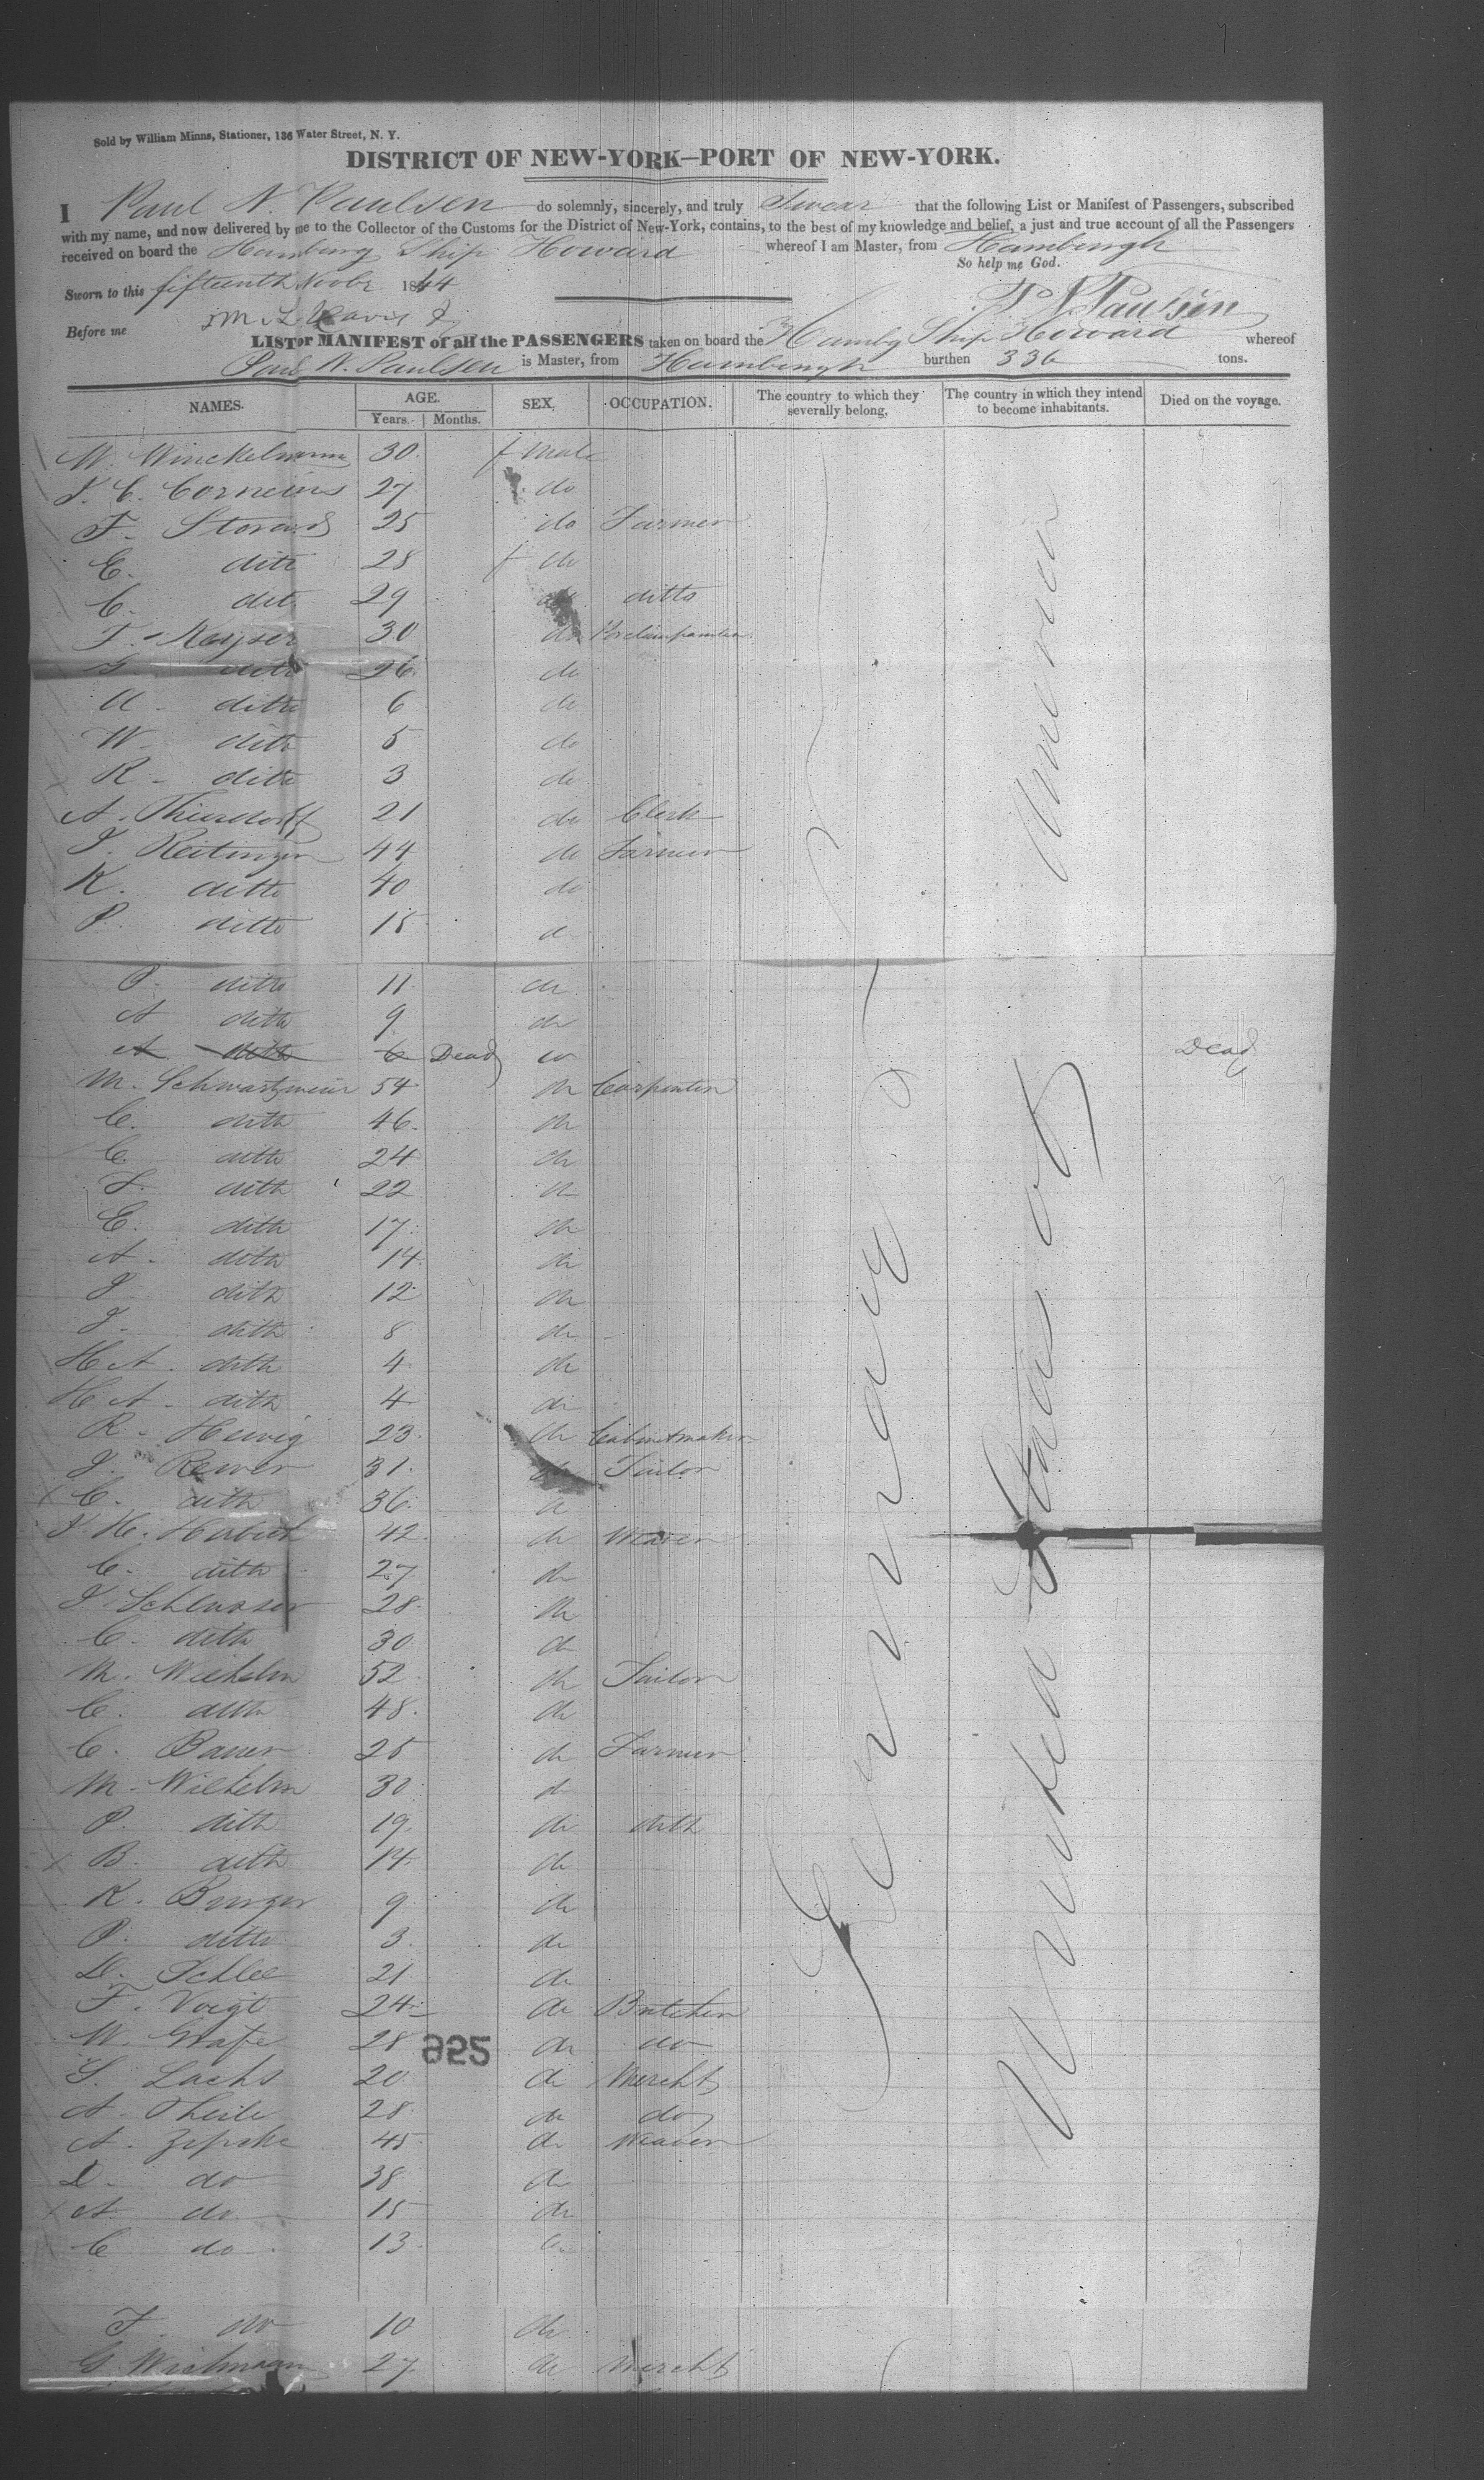 Sold by William Minns, Stationer, 136 Water Street, N. Y.
DISTRICT OF NEW-YORK—PORT OF NEW-YORK.
I Paul N. Paulsen do solemnly, sincerely, and truly Swear that the following List or Manifest of Passengers, subscribed
with my name, and now delivered by me to the Collector of the Customs for the District of New-York, contains, to the best of my knowledge and belief, a just and true account of all the Passengers
received on board the Hamburg Ship Howard whereof I am Master, from Hamburgh
So help me God.
Sworn to this fifteenth Novbr 1844
P N Paulsen
Before me
LIST or MANIFEST of all the PASSENGERS taken on board the Hambg Ship Howard whereof
Paul N. Paulsen is Master, from Hamburgh burthen 336 tons.
NAMES. AGE. Years. Months. SEX. OCCUPATION. The country to which they severally belong. The country in which they intend to become inhabitants. Died on the voyage.
W. Winckelmann 30 f male
J. C. Cornelius 27 do
F. 25 do Farmer
E. ditto 28 f do
C. ditto 29 do ditto
F. Keyser 30 do Porclainpainter
ditto 26 do
A. ditto 6 do
W. ditto 5 do
R. ditto 3 do
A. Thiersdorff 21 do Clerk
J. Reitinger 44 do Farmer
K. ditto 40 do
P. ditto 15 do
P. ditto 11 do
A ditto 9 do
A ditto 6 Dead do Dead
M. Schwartzmeier 54 do Carpenter
C. ditto 46 do
C. ditto 24 do
F. ditto 22 do
E. ditto 17 do
A. ditto 14 do
J. ditto 12 do
J. ditto 8 do
H A. ditto 4 do
H A. ditto 4 do
R. Herwig 23 do Cabinetmaker
J. Rewer 31 do Tailor
C. ditto 36 do
J. H. 42 do Weaver
C. ditto 27 do
J. Schlusser 28 do
C. ditto 30 do
M. Wilhelm 52 do Tailor
C. ditto 48 do
C. Bauer 25 do Farmer
M. Wilhelm 30 do
P. ditto 19 do ditto
B. ditto 14 do
K. Burger 9 do
P. ditto 3 do
D. Schlee 21 do
F. Voigt 24 do Butcher
W. Grafe 28 do do
S. Lachs 20 do Mercht
A. Theile 28 do do
A. Zepske 45 do Weaver
D. do 38 do
A. do 15 do
C do 13 do
F. do 10 do
G. Wichmann 27 do Mercht
Germany
United States of America
925